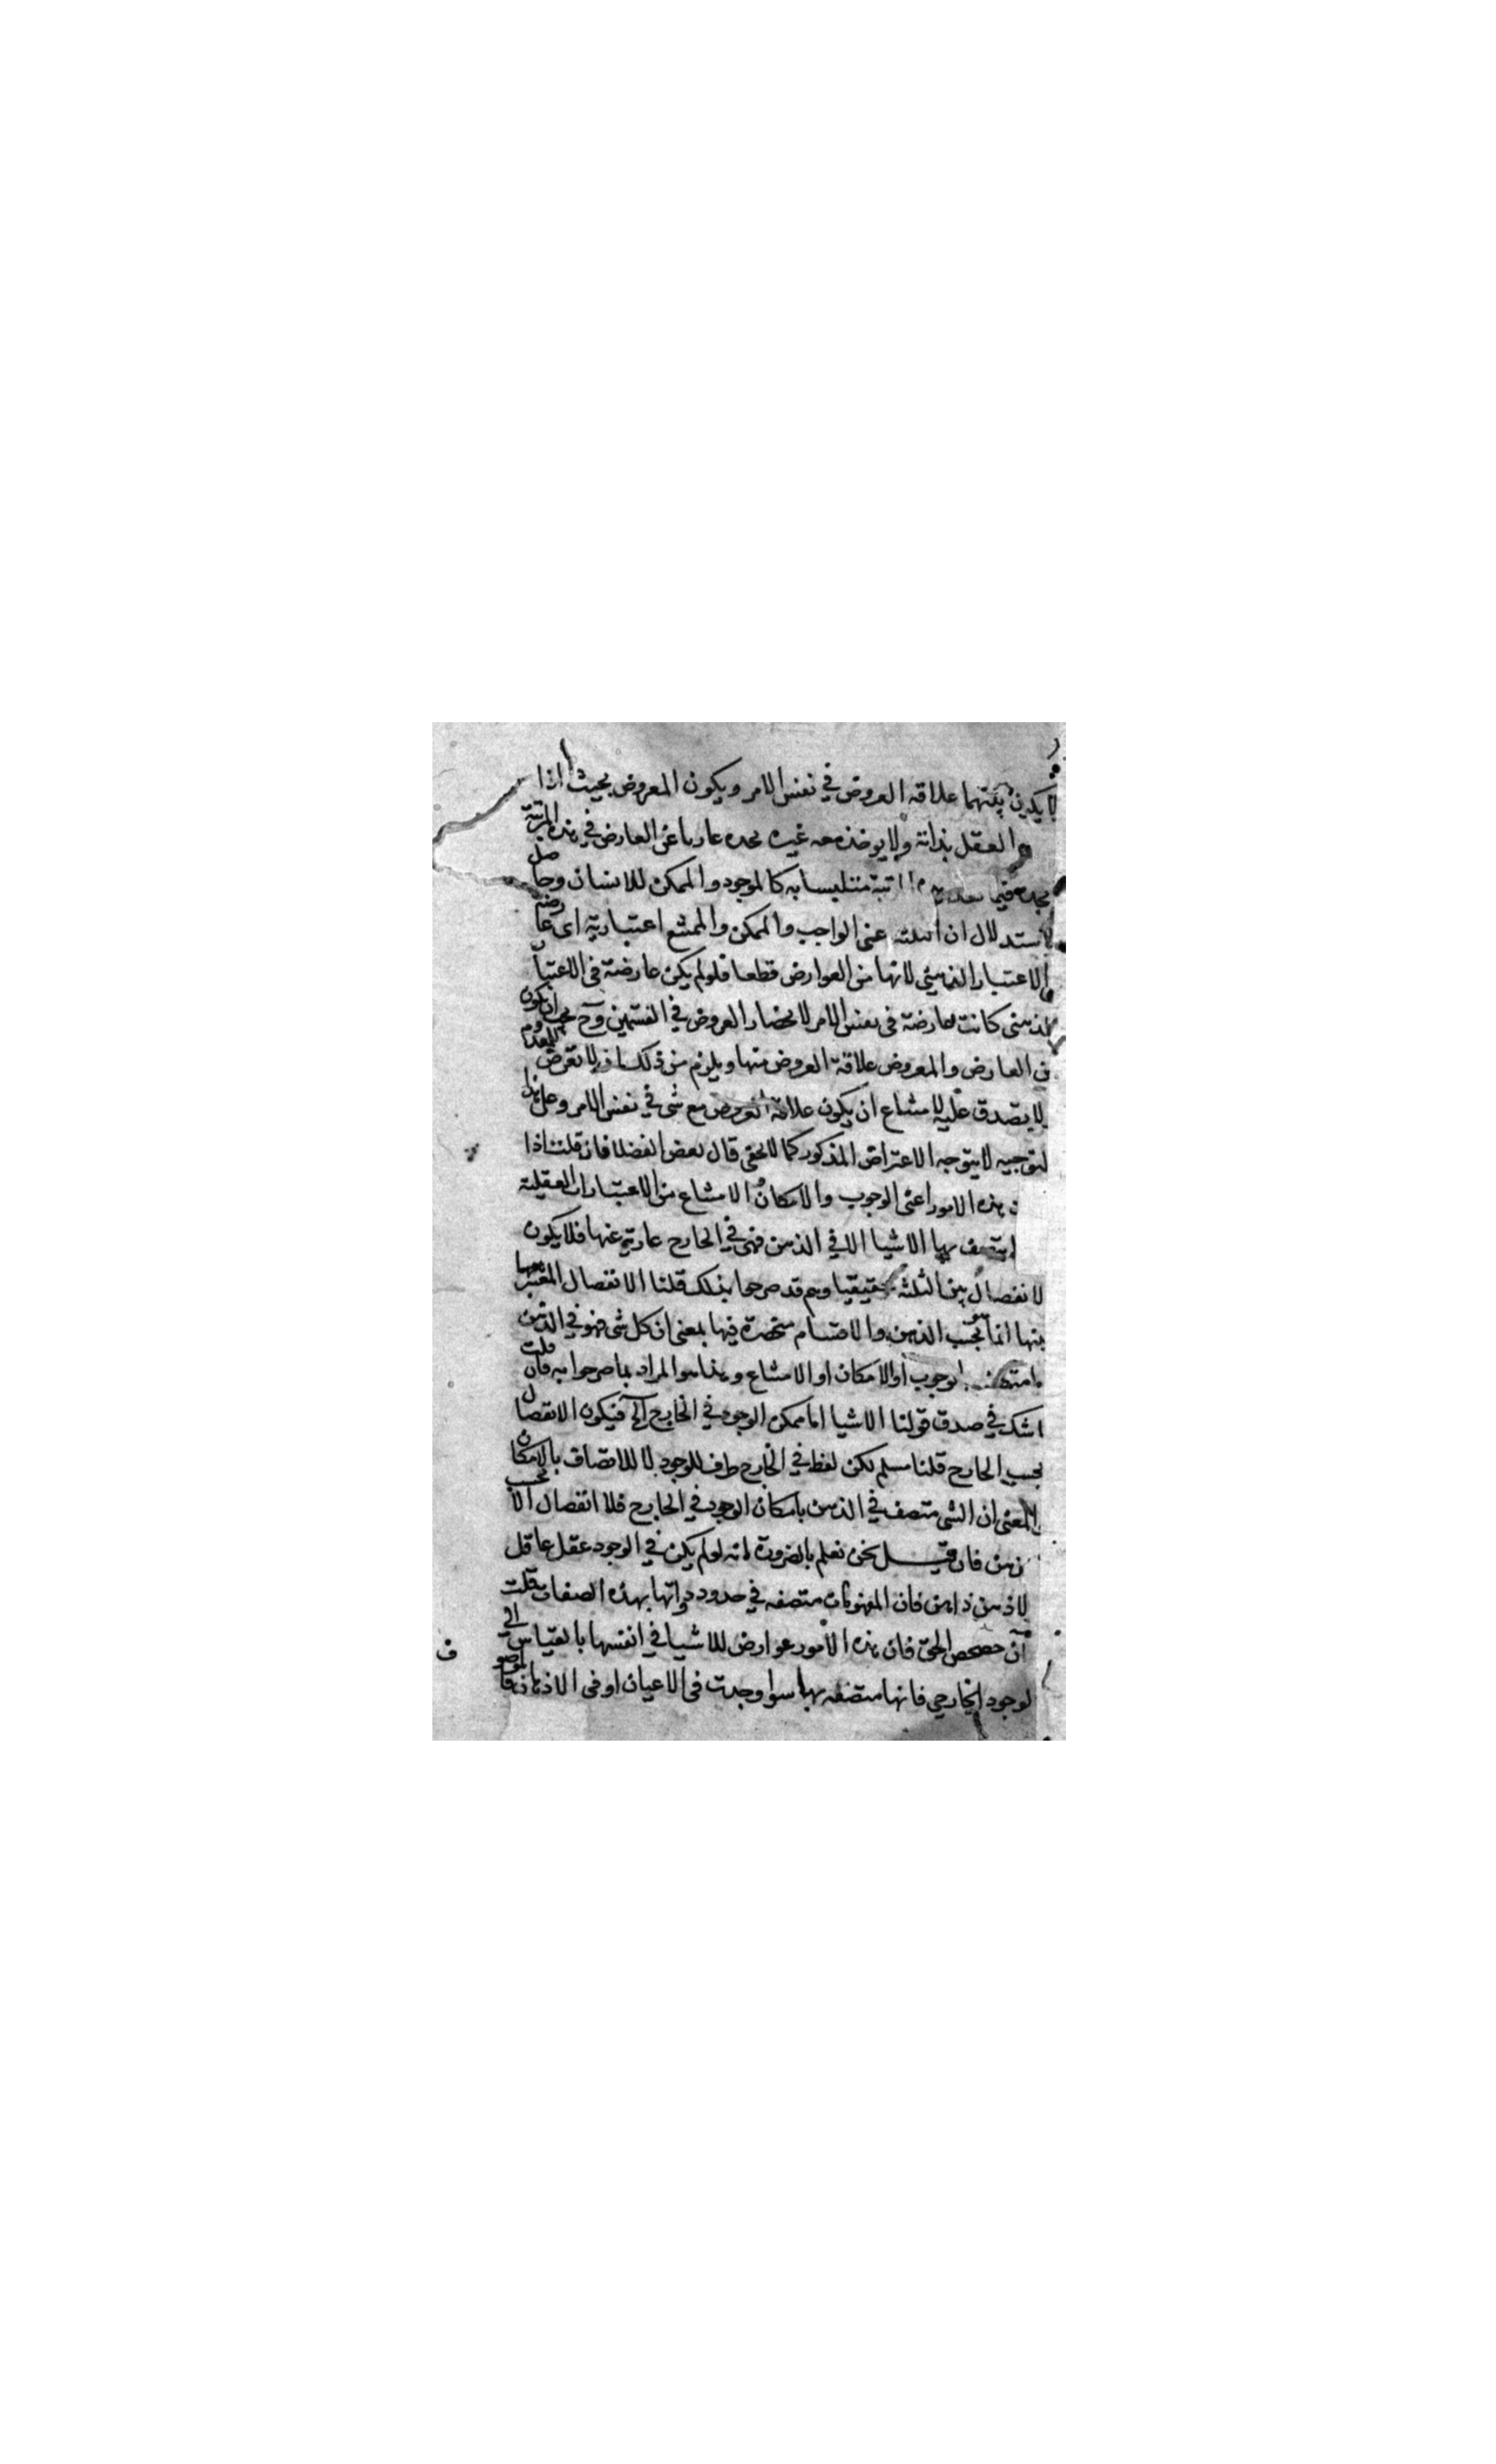 لا يكون بينهما علاقة العروض في نفس الامر ويكون المعروض بحيث اذا
العقل بذاته ولا يوخذ معه غيره يجده عاريا عن العارض في هذه المرتبة
يجده فيما متلبسا به كالموجود والممكن للانسان وحاصل
الاستدلال ان الثلثة اعنى الواجب والممكن والممتنع اعتبارية اى عارضة
في الاعتبار الذهني لانها من العوارض قطعا فلو لم يكن عارضة في الاعتبار
الذهنى كانت عارضة في نفس الامر لانحصار العروض في القسمين وح يجب ان يكون
بين العارض والمعروض علاقة العروض منها ويلزم من ذلك ان لا تعرض للمعدوم
ولا يصدق عليه لامتناع ان يكون علاقة العروض مع شى في نفس الامر وعلى هذا
التوجيه لا يتوجه الاعتراض المذكور كما لا يخفى قال بعض الفضلا فان قلت اذا
كان هذه الامور اعنى الوجوب والامكان والامتناع من الاعتبارات العقلية
لا يتصف بها الاشيا الا في الذهن فهى في الخارج عارية عنها فلا يكون
الانفصال بين الثلثة حقيقيا وهم قد صرحوا بذلك قلنا الانفصال المعتبر
بينها انما هو بحسب الذهن والاقسام منحصرة فيها بمعنى ان كل شى فهو في الذهن
اما متصف بالوجوب او الامكان او الامتناع وهذا هو المراد بما صرحوا به فان قلت
لا شك في صدق قولنا الاشيا اما ممكن الوجود في الخارج الخ فيكون الانفصال
بحسب الخارج قلنا مسلم لكن لفظ في الخارج ظرف للوجود لا للاتصاف بالامكان
والمعنى ان الشى متصف في الذهن بامكان الوجود في الخارج فلا انفصال الا بحسب
الذهن فان قيل نحن نعلم بالضرورة انه لو لم يكن في الوجود عقل عاقل
ولا ذهن ذاهن فان المفهومات متصفة في حدود ذواتها بهذه الصفات قلت
الآن حصحص الحق فان هذه الامور عوارض للاشيا في انفسها بالقياس الى
الوجود الخارجي فانها متصفة بها سوا وجدت في الاعيان او في الاذهان
ف